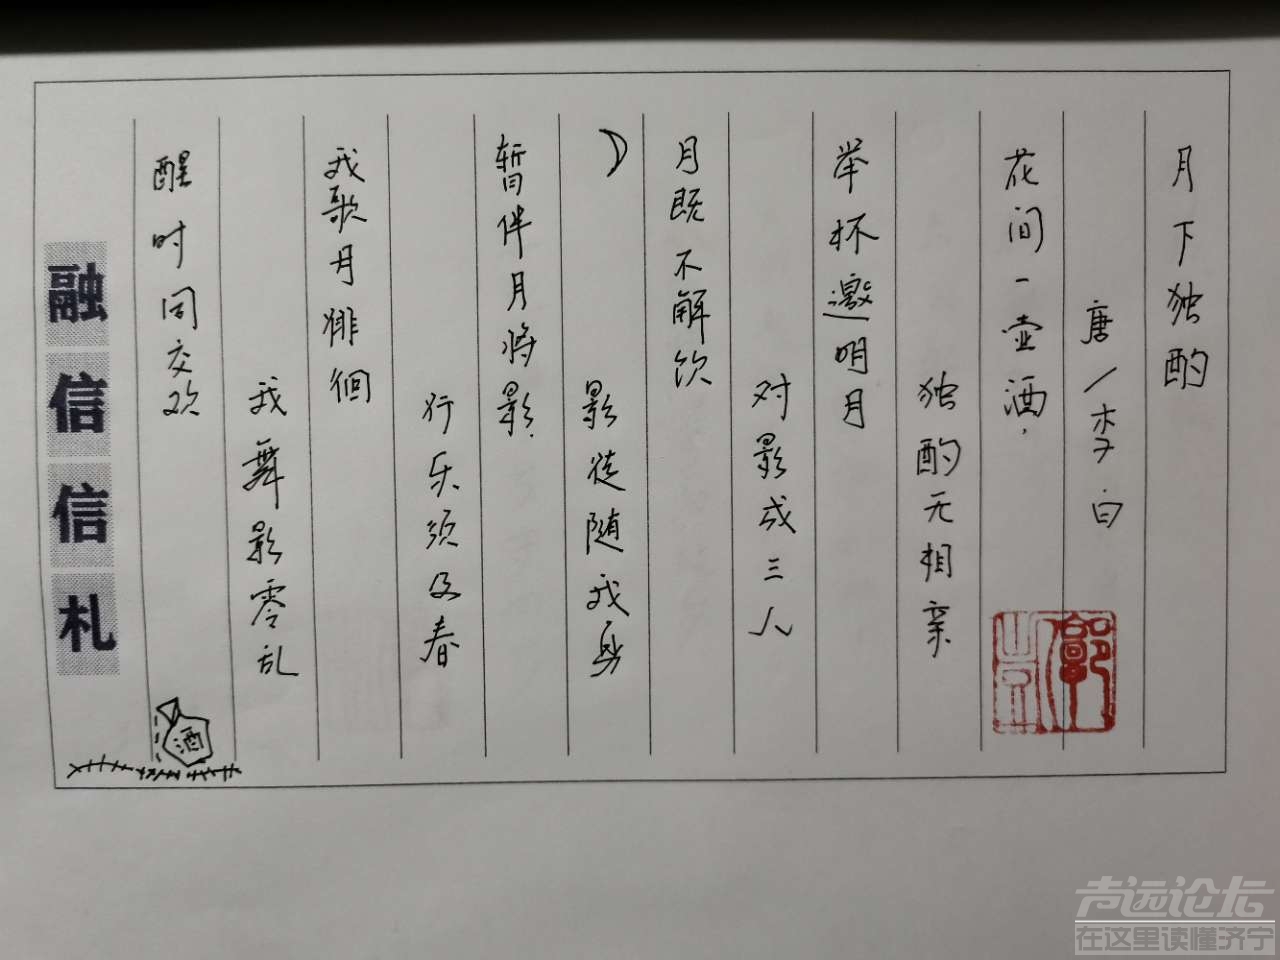 月下独酌
唐/李白
花间一壶酒,
独酌无相亲
举杯邀明月
对影成三人
月既不解饮
影徒随我身
暂伴月将影.
行乐须及春
我歌月徘徊
我舞影零乱
醒时同交欢
酒
融信信札
声远论坛
在这里读懂济宁